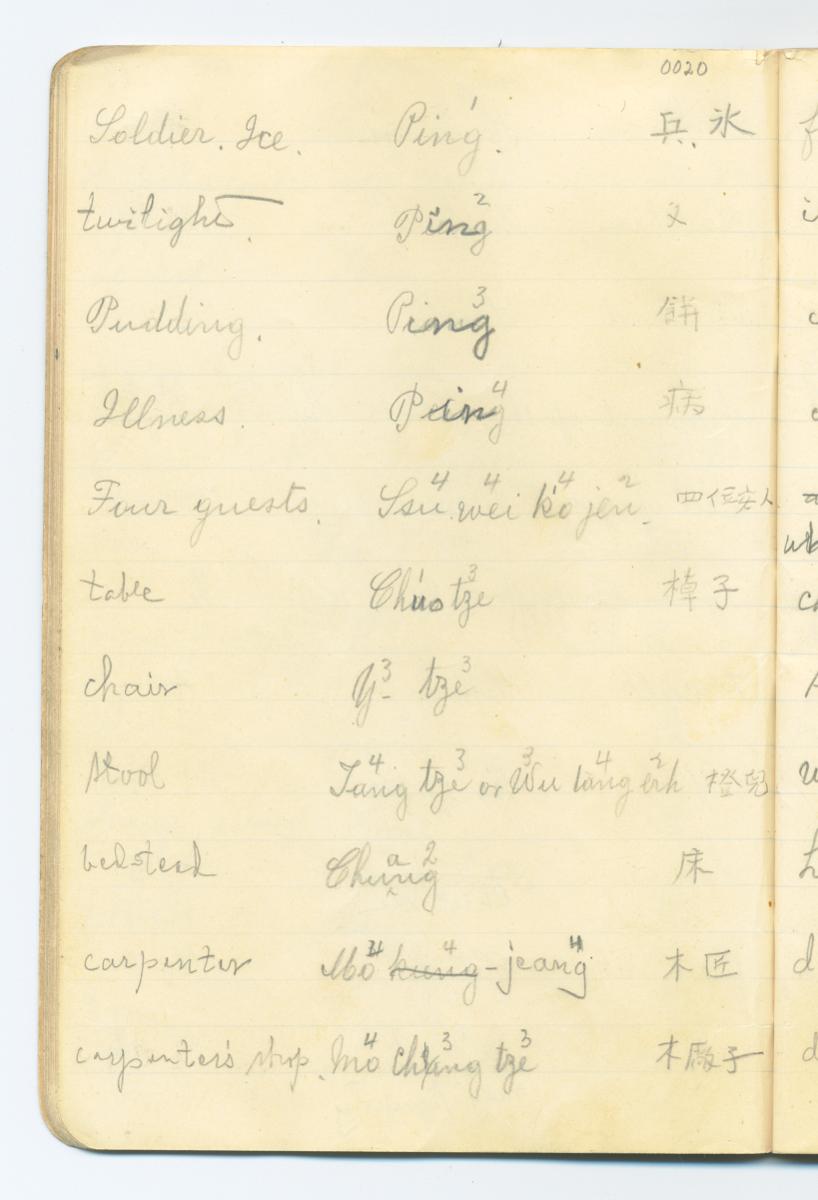 0020
Soldier. Ice. Ping1. 兵、氷
twilight. Ping2
Pudding. Ping3 餅
Illness. Ping4 病
Four guests. Ssu4 wei4 k'o4 jen2. 四位客人
table Ch'uo1 tze3 棹子
chair Y3- tze3
stool Tang4 tze3 or Wu3 tang4 erh2 橙兒
bedstead Chuang2 床
carpenter Mo4 kung4-jeang4 木匠
carpenter's shop. Mo4 chang3 tze3 木廠子